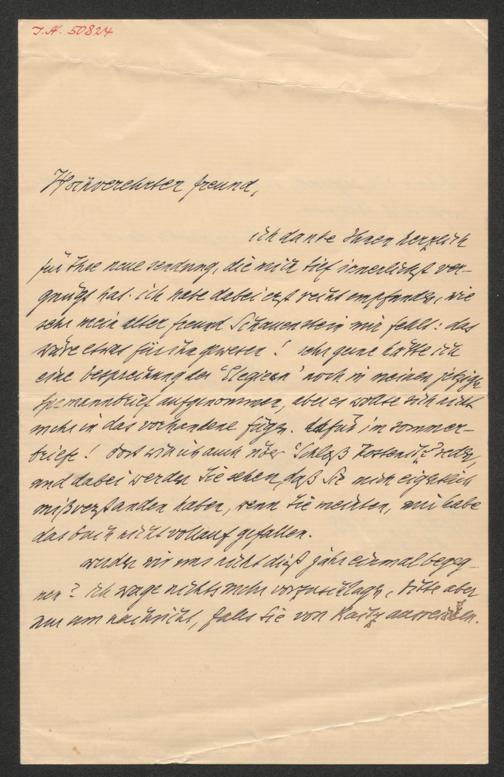 J.N. 50824
Hochverehrter freund,
ich danke Ihnen herzlich
für Ihre neue sendung, die mich tief innerlichst ver-
gnügt hat. ich habe dabei erst recht empfunden, wie
sehr mein alter freund Schauenstein mir fehlt: das
wäre etwas für ihn gewesen! sehr gerne hätte ich
eine besprechung der 'Elegieen' noch in meinen jetzigen
aufgenommen, aber es wollte sich nicht
mehr in das vorhandene fügen. dafür im sommer-
briefe! dort will ich auch über 'Schloß Kostenitz' reden,
und dabei werden Sie sehen, daß Sie mich eigentlich
mißverstanden haben, wenn Sie meinten, mir habe
das buch nicht vollauf gefallen.
werden wir uns nicht dieß jahr einmal begeg-
nen? ich wage nichts mehr vorzuschlagen, bitte aber
nur um nachricht, falls Sie von Raitz ausreisen.